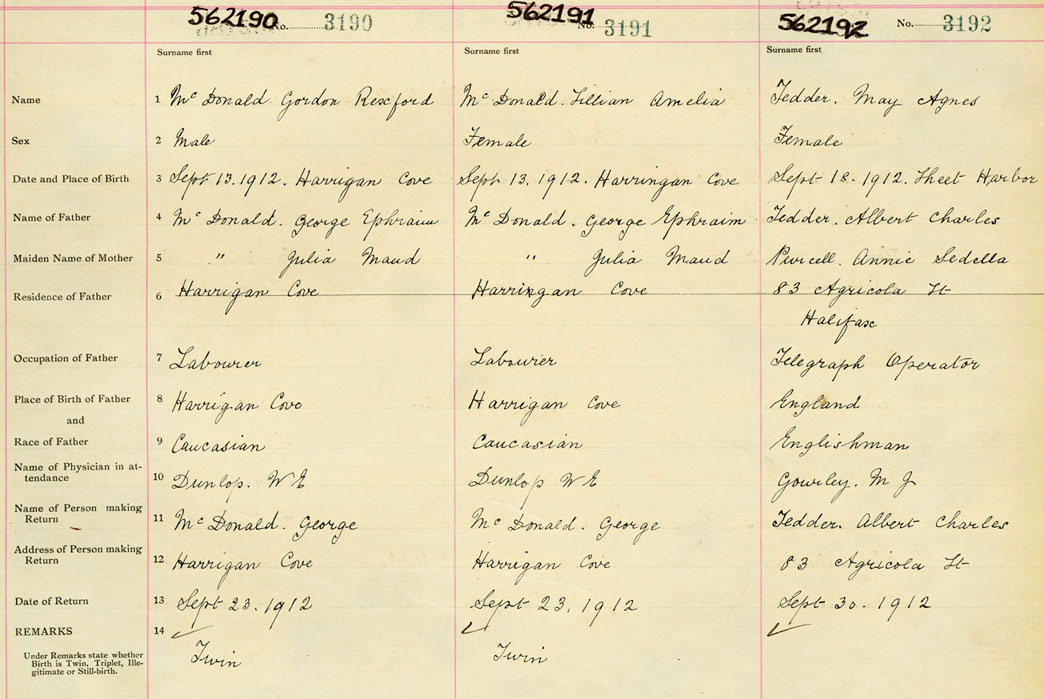 562190 No. 3190 562191 No. 3191 562192 No. 3192
Surname first Surname first Surname first
Name 1 McDonald. Gordon Rexford McDonald. Lillian Amelia Tedder. May Agnes
Sex 2 Male Female Female
Date and Place of Birth 3 Sept 13.1912. Harrigan Cove Sept 13.1912. Harringan Cove Sept 18.1912. Sheet Harbor
Name of Father 4 McDonald. George Ephraim McDonald. George Ephraim Tedder. Albert Charles
Maiden Name of Mother 5 " Julia Maud " Julia Maud Purcell. Annie Sedella
Residence of Father 6 Harrigan Cove Harringan Cove 83 Agricola St
Halifax
Occupation of Father 7 Labourer Labourer Telegraph Operator
Place of Birth of Father 8 Harrigan Cove Harrigan Cove England
and
Race of Father 9 Caucasian Caucasian Englishman
Name of Physician in at-
tendance 10 Dunlop. W E Dunlop W E Gourley. M J
Name of Person making
Return 11 McDonald. George McDonald. George Tedder. Albert Charles
Address of Person making
Return 12 Harrigan Cove Harrigan Cove 83 Agricola St
Date of Return 13 Sept 23.1912 Sept 23.1912 Sept 30.1912
REMARKS 14
Under Remarks state whether
Birth is Twin, Triplet, Ille-
gitimate or Still-birth. Twin Twin